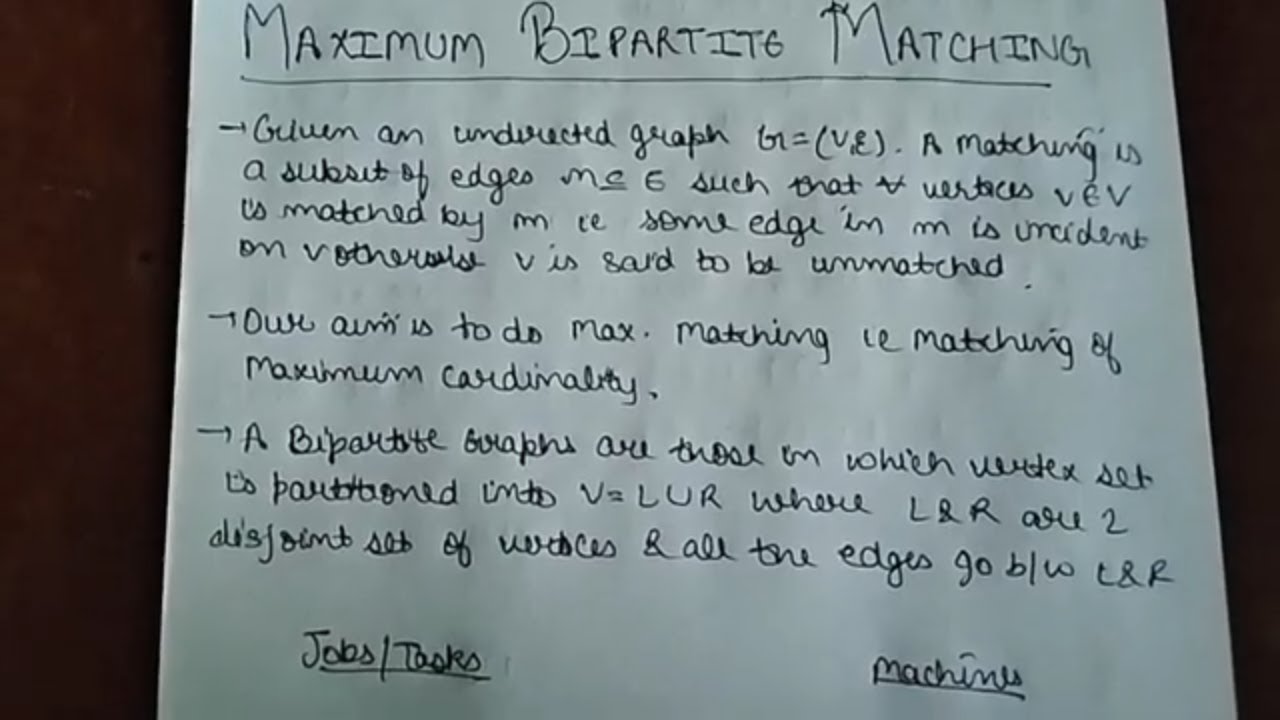 MAXIMUM BIPARTITE MATCHING
→ Given an undirected graph G=(V,E). A matching is
a subset of edges m⊆E such that ∀ vertices v∈V
is matched by m ie some edge in m is incident
on v otherwise v is said to be unmatched.
→ Our aim is to do max. matching ie matching of
Maximum cardinality.
→ A Bipartite Graphs are those in which vertex set
is partitioned into V=LUR where L&R are 2
disjoint set of vertices & all the edges go b/w L&R
Jobs/Tasks
Machines